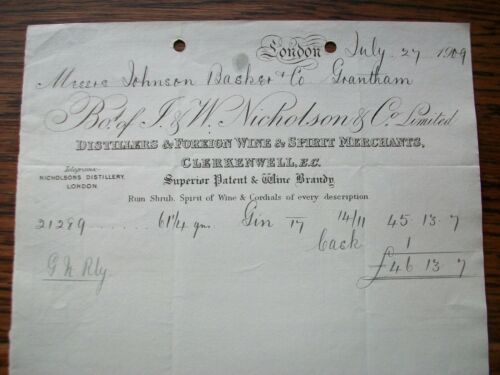 London July 27 1909
Messrs Johnson Basker & Co Grantham
Bot. of J. & W. Nicholson & Co. Limited
DISTILLERS & FOREIGN WINE & SPIRIT MERCHANTS,
CLERKENWELL, E.C.
Telegrams:
NICHOLSONS DISTILLERY,
LONDON
Superior Patent & Wine Brandy
Rum Shrub. Spirit of Wine & Cordials of every description
21289 ...... 61 1/4 gns. Gin 17 14/11 45.13.7
Cask 1
£46 13.7
G N Rly